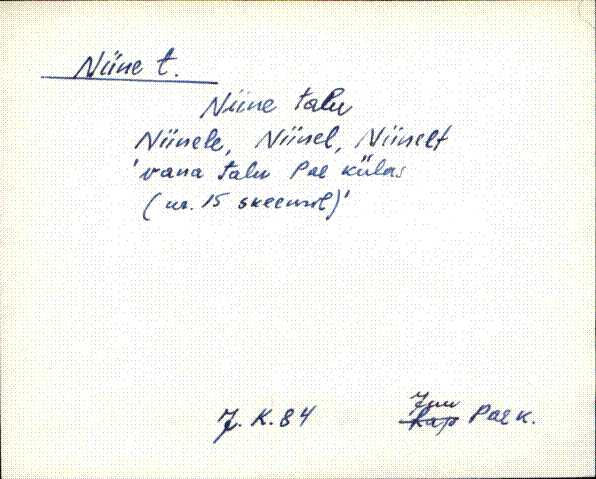 Niine t.
Niine talu
Niinele, Niinel, Niinelt
'vana talu Pae külas
(nr. 15 skeemil)'
J. K. 84
Juu
Rap Pae k.